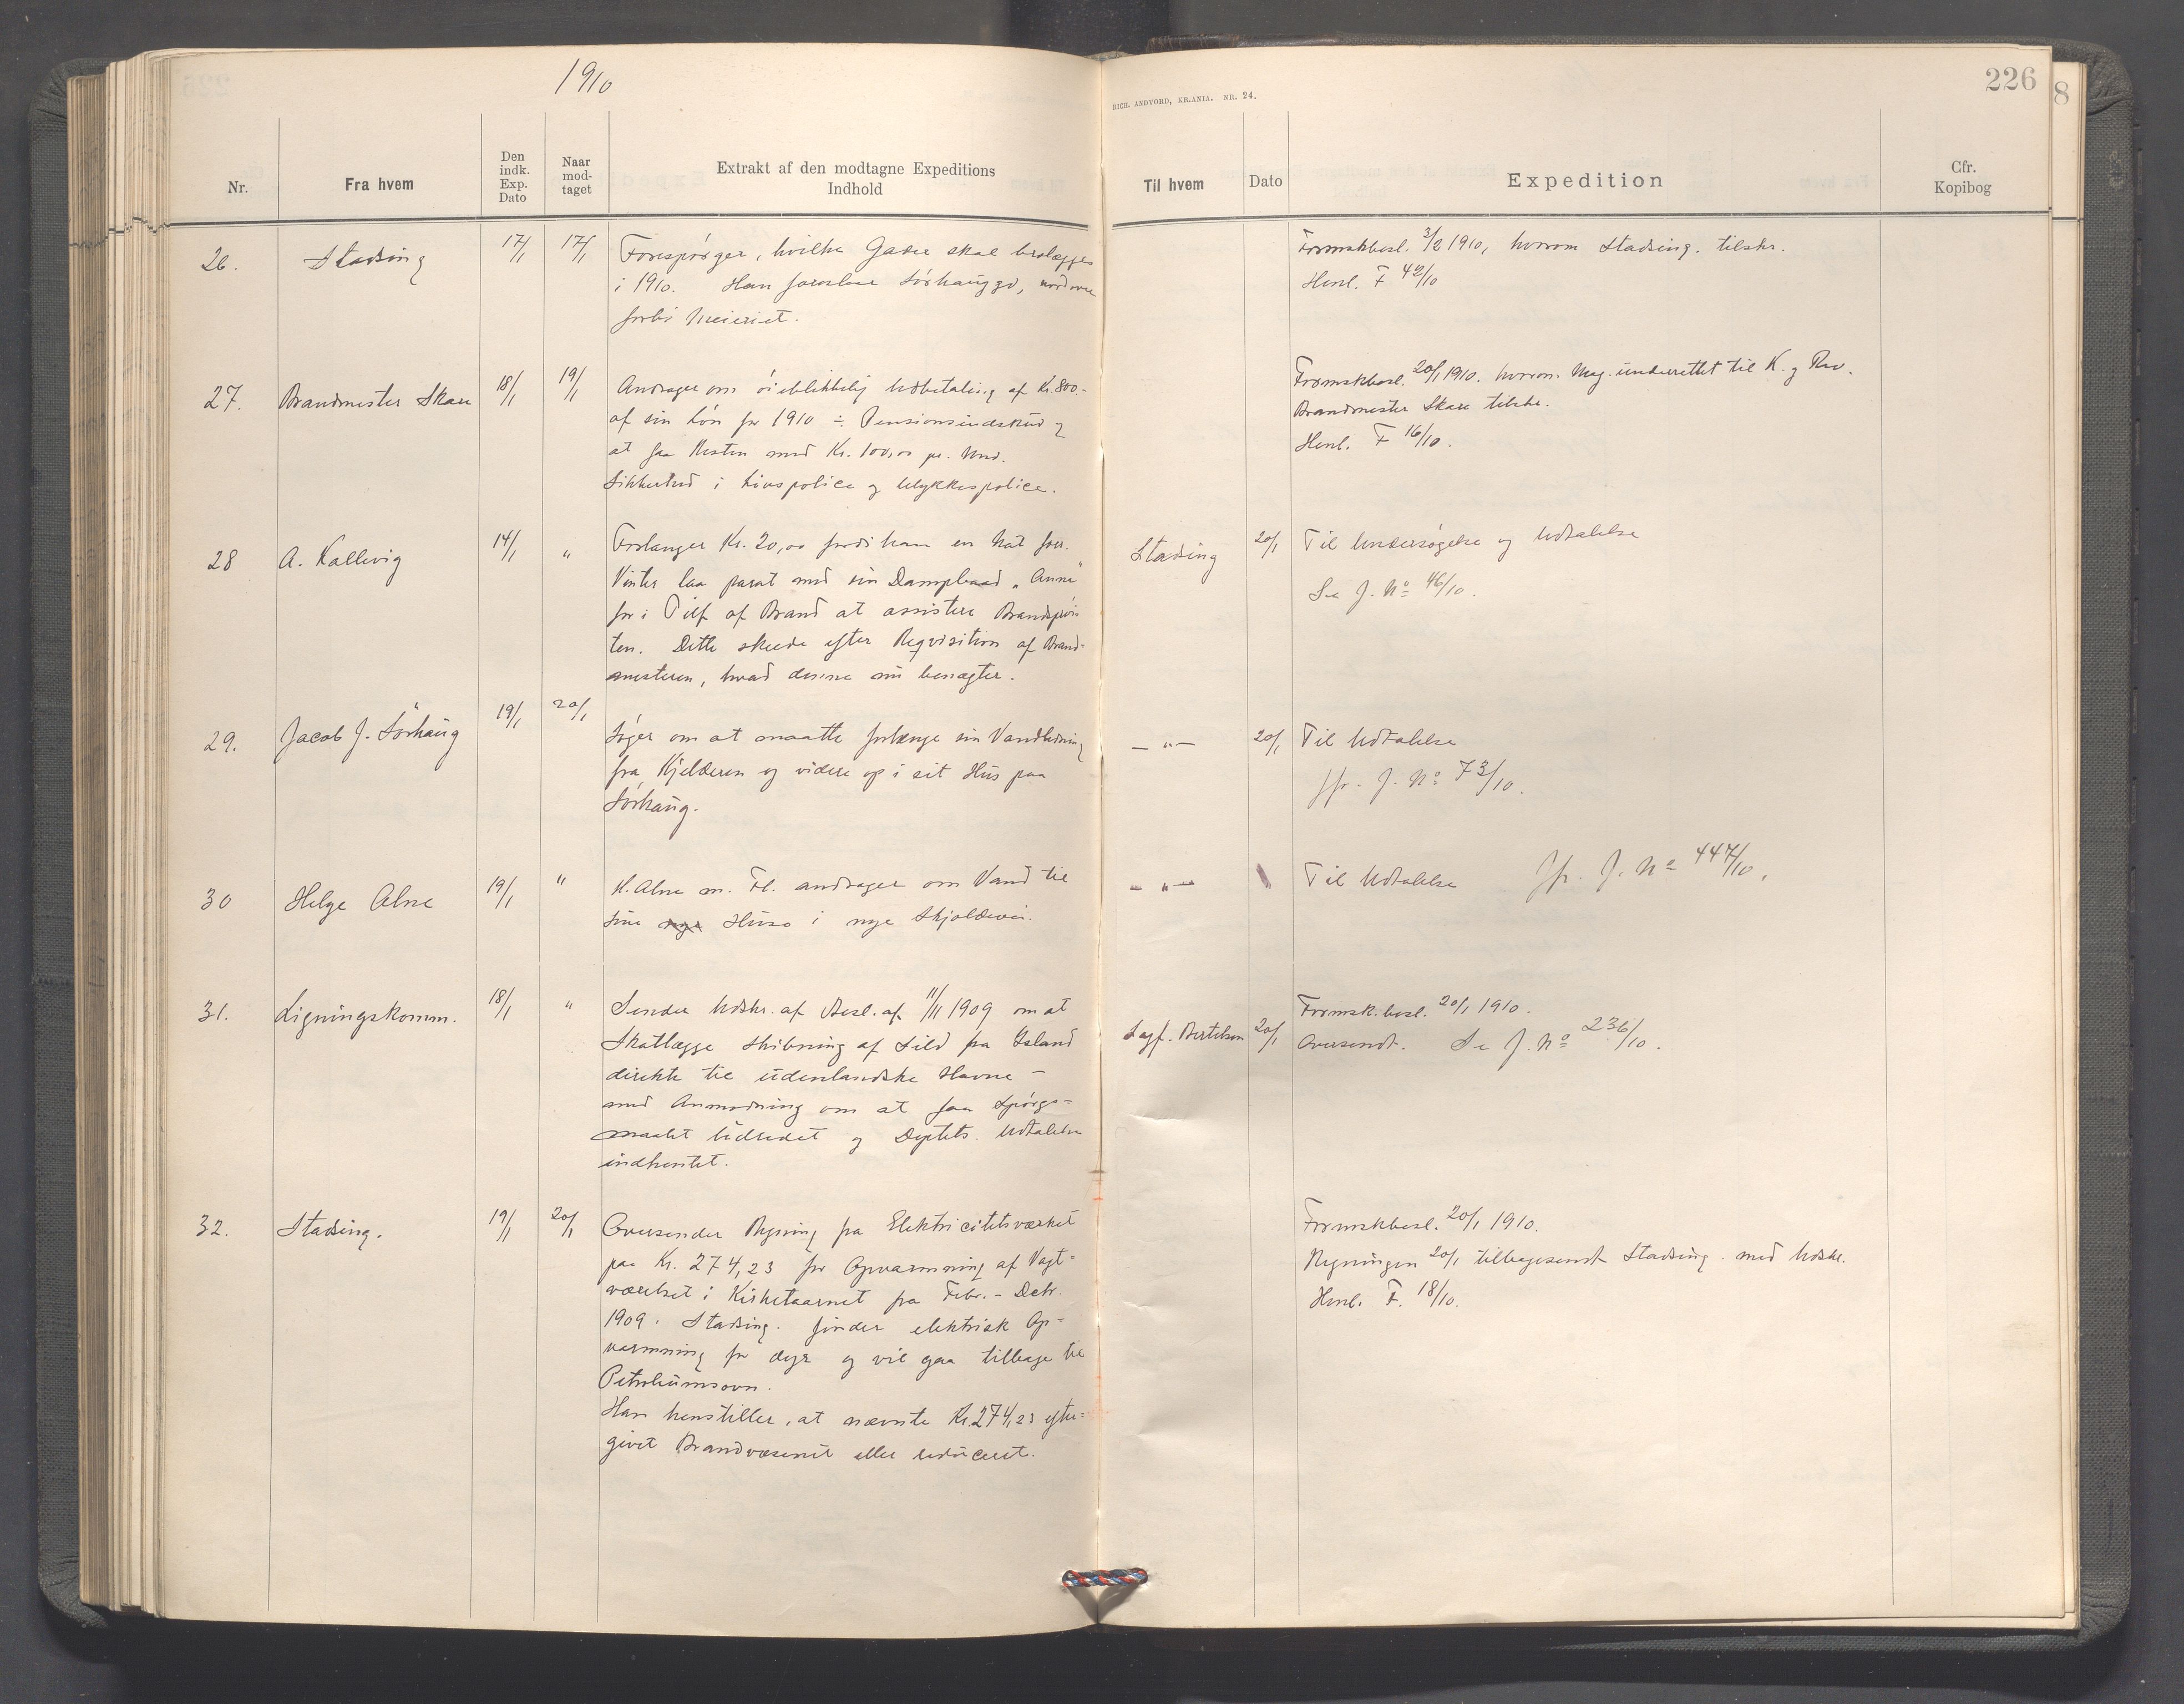 1910
Nr.
Fra hvem
Den indk. Exp. Dato
Naar mod-taget
Extrakt af den modtagne Expeditions Indhold
26.
Stadsing
17/1
17/1
Forespørger, hvilke Gader skal brolægges
i 1910. Han foreslaar Sørhauggd, nordover
forbi Meieriet.
27.
Brandmester Skare
18/1
19/1
Andrager om øieblikkelig Udbetaling af Kr. 800.-
af sin Løn for 1910 ÷ Pensionsindskud og
at faa Resten med Kr. 100,00 pr. Md.
Sikkerhed i Livspolice og Ulykkespolice.
28
A. Kallevig
14/1
"
Forlanger Kr. 20,00 fordi han en Nat forr.
Vinter laa parat med sin Dampbaad „Anna"
for i Tilf af Brand at assistere Brandsprøi
ten. Dette skeede efter Reqvisition af Brand-
mesteren, hvad denne nu benægter.
29.
Jacob J. Sørhaug
19/1
20/1
Søger om at maatte forlænge sin Vandledning
fra Kjelderen og videre op i sit Hus paa
Sørhaug.
30
Helge Alne
19/1
"
H. Alne m. Fl. andrager om Vand til
sine nye Huse i nye Skjoldevei.
31.
Ligningskomm.
18/1
"
Sender Udskr. af Besl. af 11/11 1909 om at
Skatlægge Skibning af Sild fra Island
direkte til udenlandske Havne -
med Anmodning om at faa Spørgs-
maalet udredet og Deptets. Udtalelse
indhentet.
32.
Stadsing.
19/1
20/1
Oversender Regning fra Elektricitetsværket
paa Kr. 274,23 for Opvarmning af Vagt-
værelset i Kirketaarnet fra Febr. - Decbr.
1909. Stadsing. finder elektrisk Op-
varmning for dyr og vil gaa tilbage til
Petroleumsovn.
Han henstiller, at nævnte Kr. 274,23 efter-
givet Brandvæsenet eller reduceret.
RICH. ANDVORD, KR.ANIA. NR. 24.
226
8
Til hvem
Dato
Expedition
Cfr. Kopibog
Formskbesl. 3/2 1910, hvorom Stadsing. tilskr.
Henl. F 42/10
Formskbesl. 20/1 1910. hvorom Mag. underrettet til K. og Rev.
Brandmester Skare tilskr.
Henl. F 16/10.
Stadsing
20/1
Til Undersøgelse og Udtalelse
Se J. No 46/10.
- " -
20/1
Til Udtalelse
Jfr. J. No 73/10.
- " -
Til Udtalelse Jfr. J. No 447/10.
Formsk.besl. 20/1 1910.
Sagf. Bertelsen
20/1
Oversendt. Se J. No 236/10.
Formskbesl. 20/1 1910.
Regningen 20/1 tilbagesendt Stadsing. med Udskr.
Henl. F. 18/10.